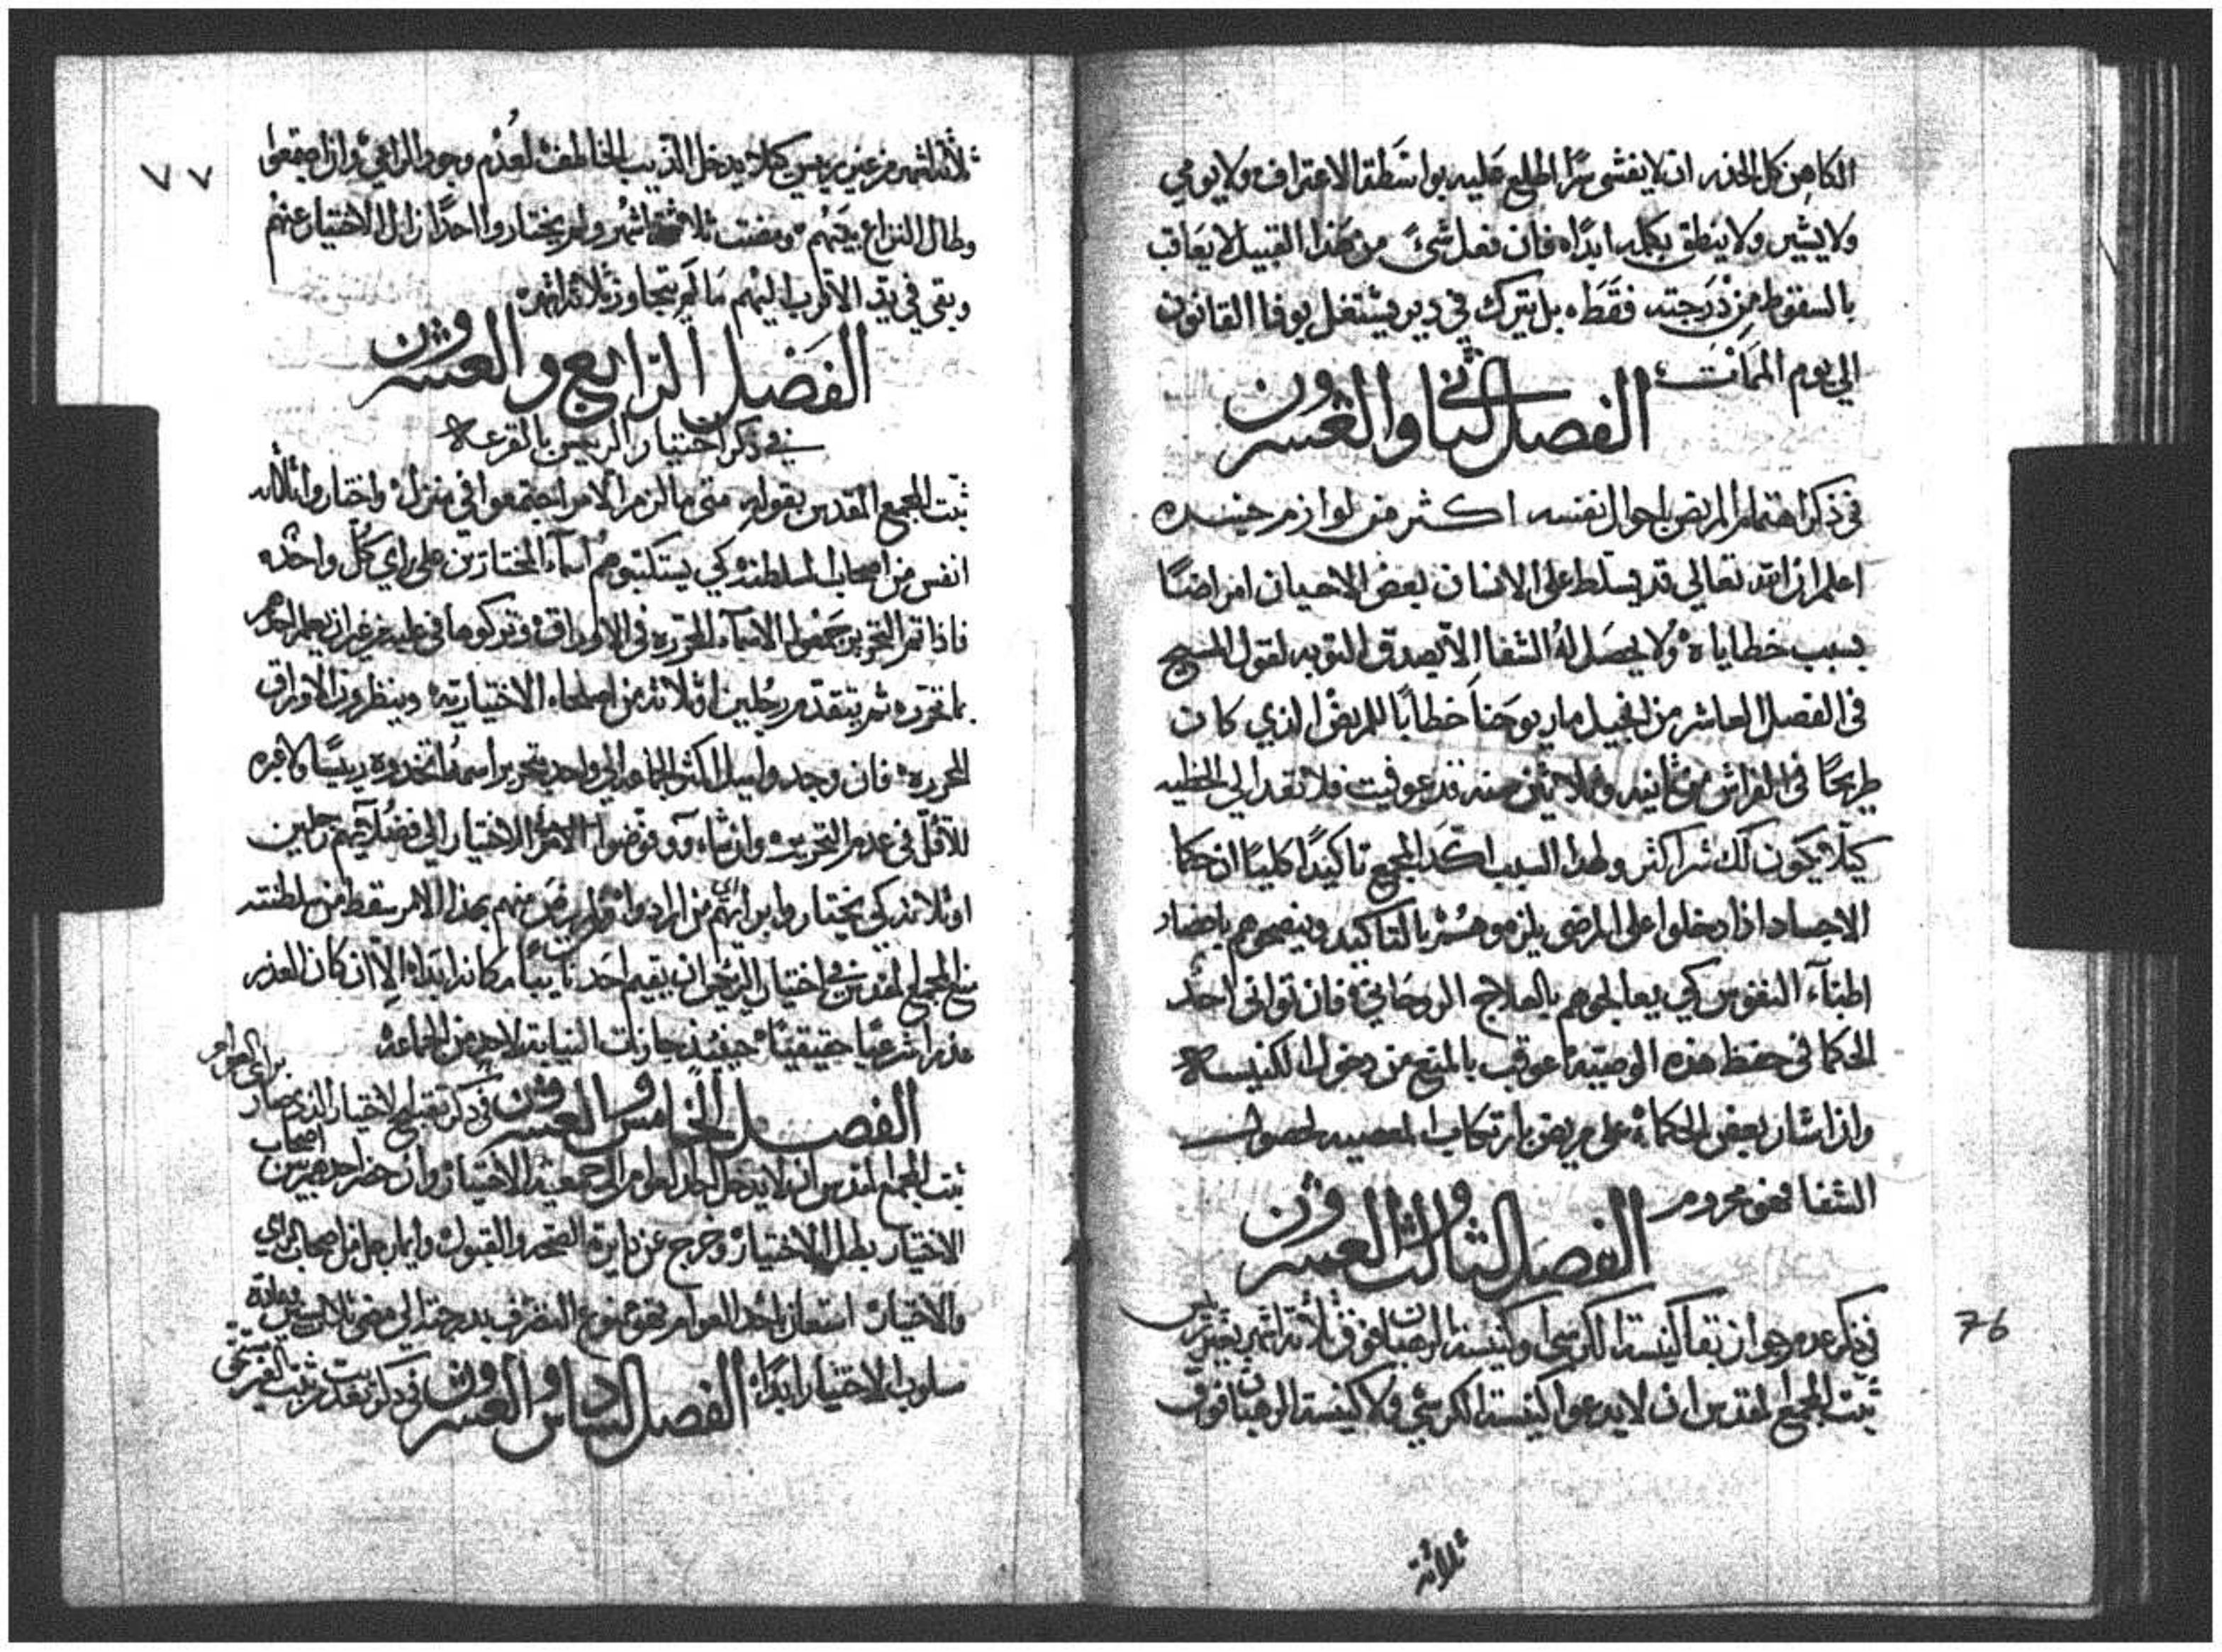 الكاهن كل الحذر ان لا يفشي سرًا اطلع عليه بواسطة الاعتراف ولا يومي
ولا يشير ولا ينطق بكلمه ابدًا فان فعل شيءً من هذا القبيل لا يعاقب
بالسقوط من درجته فقط بل يترك في دير يشتغل بوفا القانون
الي يوم الممات
الفصل الثاني والعشرون
في ذكر اهتمام المريض باحوال نفسه اكثر من لوازم جسده
اعلم ان الله تعالي قد يسلط على الانسان بعض الاحيان امراضًا
بسبب خطاياه ولا يحصل له الشفا الا بصدق التوبه لقول المسيح
في الفصل العاشر من انجيل مار يوحنا خطابًا للمريض الذي كان
طريحًا في الفراش من ثمانيه وثلاثين سنه قد عوفيت فلا تعد الي الخطيه
كيلا يكون لك شر اكثر ولهذا السبب اكد المجمع تاكيدًا كليًا ان حكما
الاجساد اذا دخلوا على المرضى يلزموهم بالتاكيد وينصحوهم باحضار
اطبآء النفوس كي يعالجوهم بالعلاج الروحاني فان توانى احد
الحكما في حفظ هذه الوصيه عوقب بالمنع من دخول الكنيسه
واذا شار بعض الحكماء على مريض بارتكاب المعصيه لحصول
الشفا فهو محروم
الفصل الثالث والعشرون
في ذكر عدم جواز بقا كنيسة الكرسي وكنيسة الرهبان فوق ثلاثة اشهر بغير ريس
ثبت المجمع المقدس ان لا يدعوا كنيسة الكرسي ولا كنيسة الرهبان فوق
76
ثلاثة
٧٧
ثلاثة اشهر من غير ريس كيلا يدخل الذيب الخاطف لعدم وجود الراعي وان اجتمعوا
وطال النزاع بينهم ومضت ثلاثة اشهر ولم يختاروا احدًا زال الاختيار عنهم
وبقي في يد الاقرب اليهم ما لم يتجاوز ثلاثة اشهر
الفصل الرابع والعشرون
في ذكر اختيار الريس بالقرعه
ثبت المجمع المقدس بقوله متى ما لزم الامر اجتمعوا في منزل واختاروا ثلاثة
انفس من اصحاب السلطنه كي يستكتبوهم اسمآء المختارين على راي كل واحد
فاذا تم التحرير جمعوا الاسمآء المحرره في الاوراق وتركوها في علبه من غير ان يعلم احدهم
بما تحرره ثم يتقدم رجلين او ثلاثة من اصحاب الاختياريه وينظرون الاوراق
المحرره فان وجدوا ميل اكثر الجماعه الي واحد بتحرير اسمه اتخذوه ريسًا ولا عبره
للاقل في عدم التحرير وان شاءوا فوضوا الامر الاختيار الي فضلآيهم رجلين
او ثلاثه كي يختاروا من ارادوا
منع المجمع المقدس في اختيار الريس ان يقيم احد نايبًا مكانه ابدًا الا ان كان العذر
عذرًا شرعيًا حقيقيًا حينيذ جازت النيابه لاحد من الجماعه
الفصل الخامس والعشرون في ذكر تقبيح الاختيار الذي صار
براي العوام
ثبت المجمع المقدس ان لا يدخل احد العوام الي جمعية الاختيار وان حضر احدهم بين اصحاب
الاختيار بطل الاختيار وخرج عن دايرة الصحه والقبول وايما رجل من اصحاب الراي
والاختيار استعان باحد العوام فهو ممنوع التصرف بدرجته الي مضي ثلاث سنين
مسلوب الاختيار ابدًا الفصل السادس والعشرون في ذكر